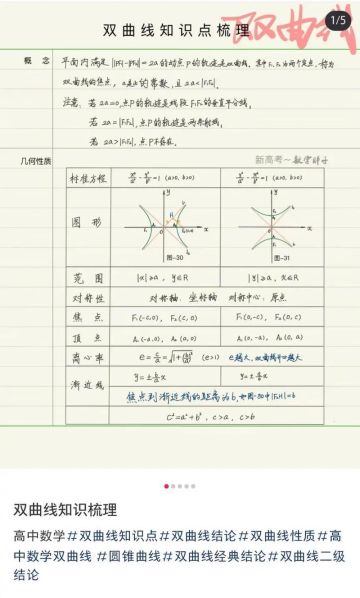 双曲线
1/5
双曲线知识点梳理
概 念 平面内满足 ||PF₁|-|PF₂||=2a的动点P的轨迹是双曲线, 其中F₁、F₂为两个定点, 称为
双曲线的焦点, a是正的常数, 且2a<|F₁F₂|.
注意: 若2a=0,点P的轨迹是线段F₁F₂的垂直平分线;
若2a=|F₁F₂|,点P的轨迹是两条射线;
若2a>|F₁F₂|,点P不存在.
几何性质
新高考~数学
标准方程 x²/a²-y²/b²=1 (a>0, b>0) y²/a²-x²/b²=1 (a>0, b>0)
图 形
图-30 图-31
范 围 |x|≥a, y∈R |y|≥a, x∈R
对称性 对称轴: 坐标轴 对称中心: 原点
焦 点 F₁(-c,0), F₂(c,0) F₁(0,-c), F₂(0,c)
顶 点 A₁(-a,0), A₂(a,0) A₁(0,-a), A₂(0,a)
离心率 e=c/a=√1+(b/a)² (e>1) e越大, 双曲线开口越大
渐近线 y=±b/a x y=±a/b x
焦点到渐近线的距离为b, 如图-30中|F₂H|=b
c²=a²+b², c>a, c>b
双曲线知识梳理
高中数学#双曲线知识点#双曲线结论#双曲线性质#高
中数学双曲线 #圆锥曲线#双曲线经典结论#双曲线二级
结论